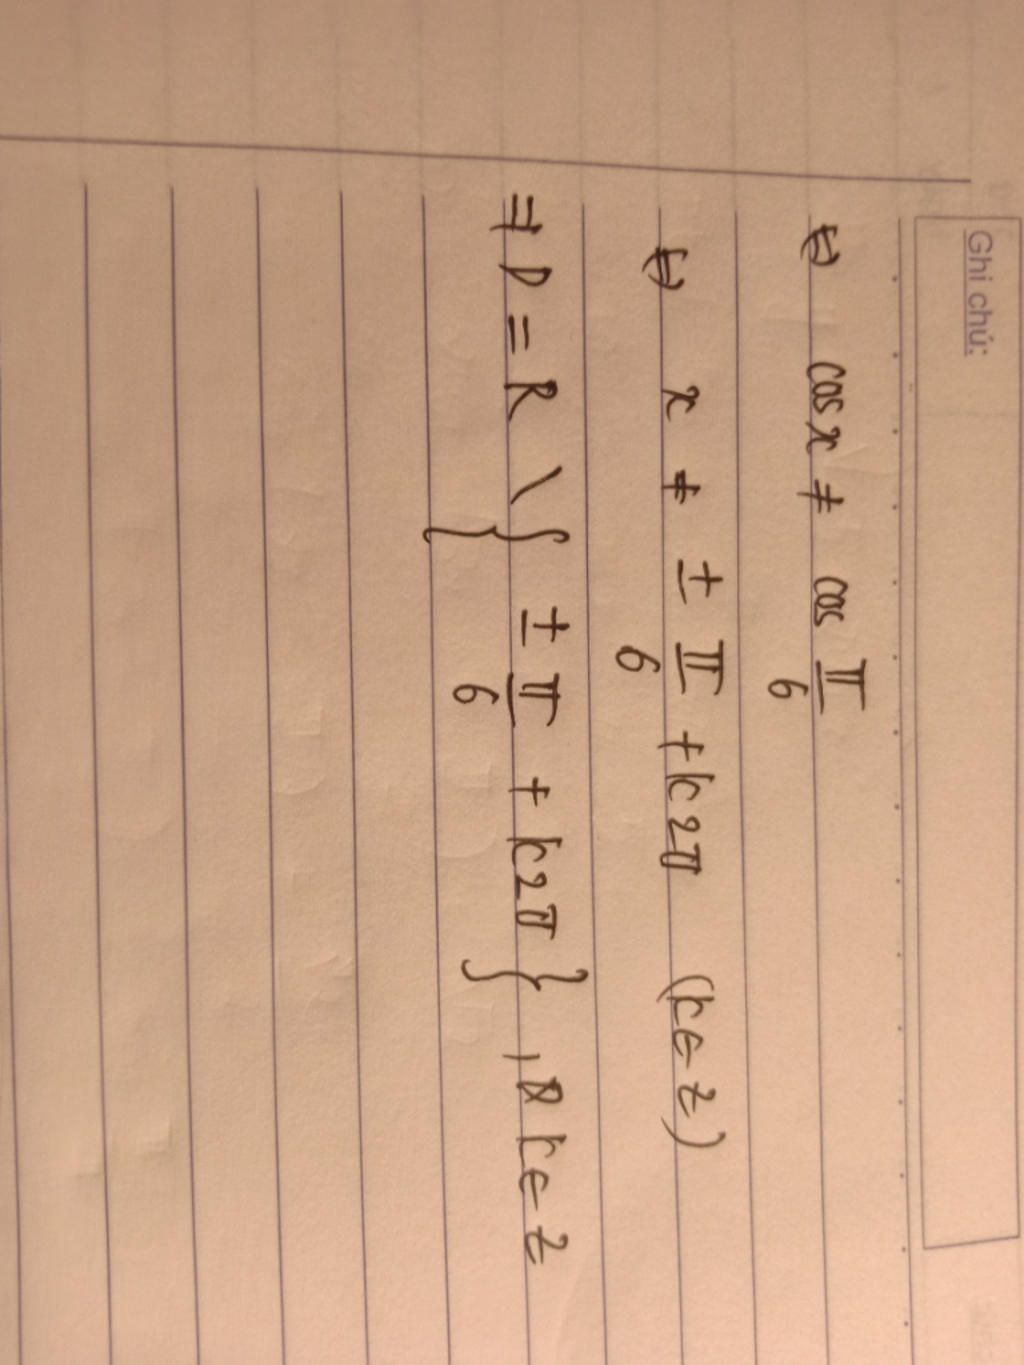 Ghi chú:
⇔ cos x ≠ cos π/6
⇔ x ≠ ± π/6 + k2π (k ∈ Z)
⇒ D = R \ { ± π/6 + k2π } , k ∈ Z